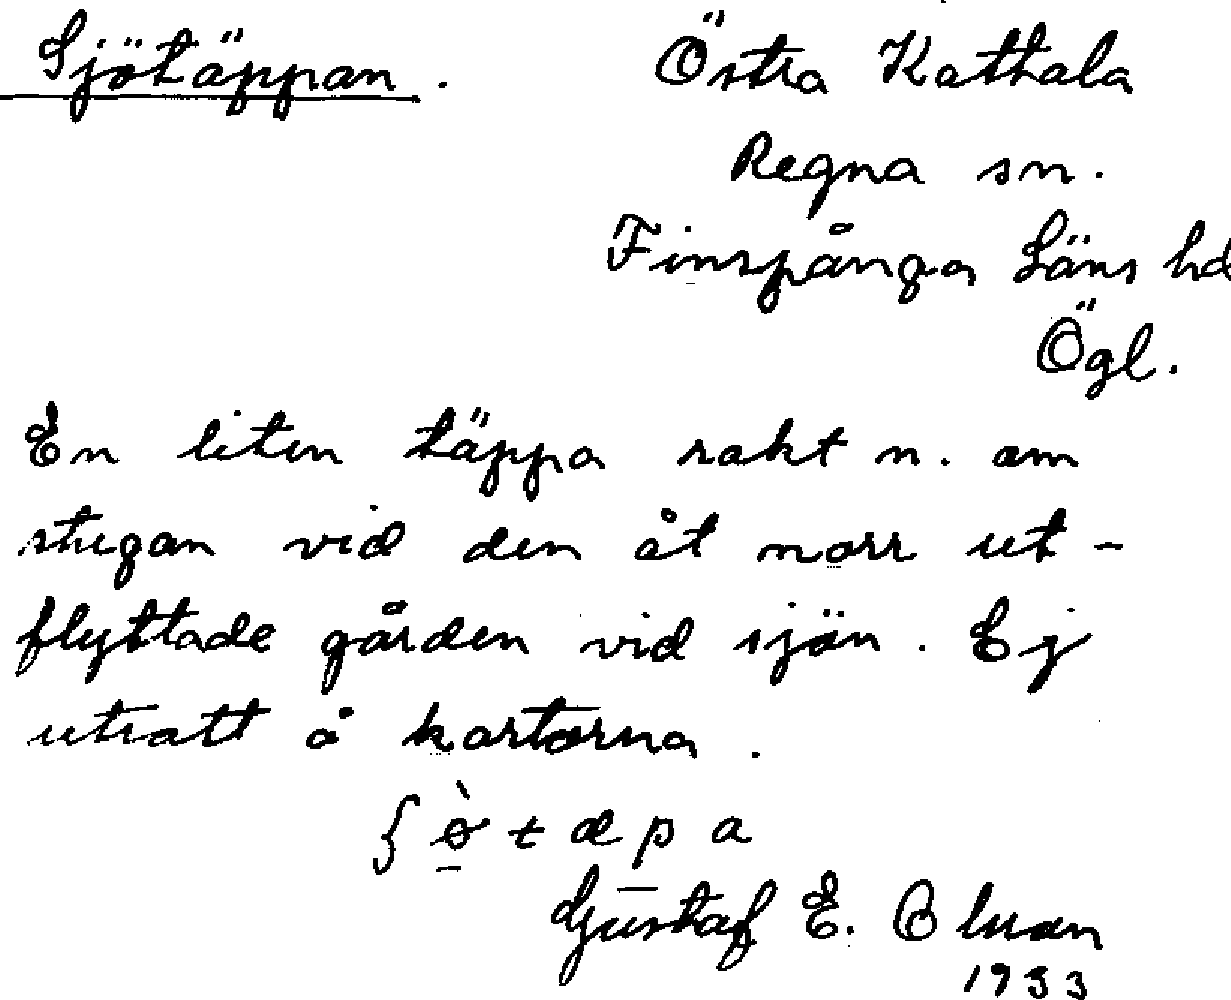 Sjötäppan. Östra Kathala
Regna sn.
Finspånga Läns hd
Ögl.
En liten täppa rakt n. om
stugan vid den åt norr ut-
flyttade gården vid sjön. Ej
utsatt å kartorna.
Gustaf E. Olsson
1933